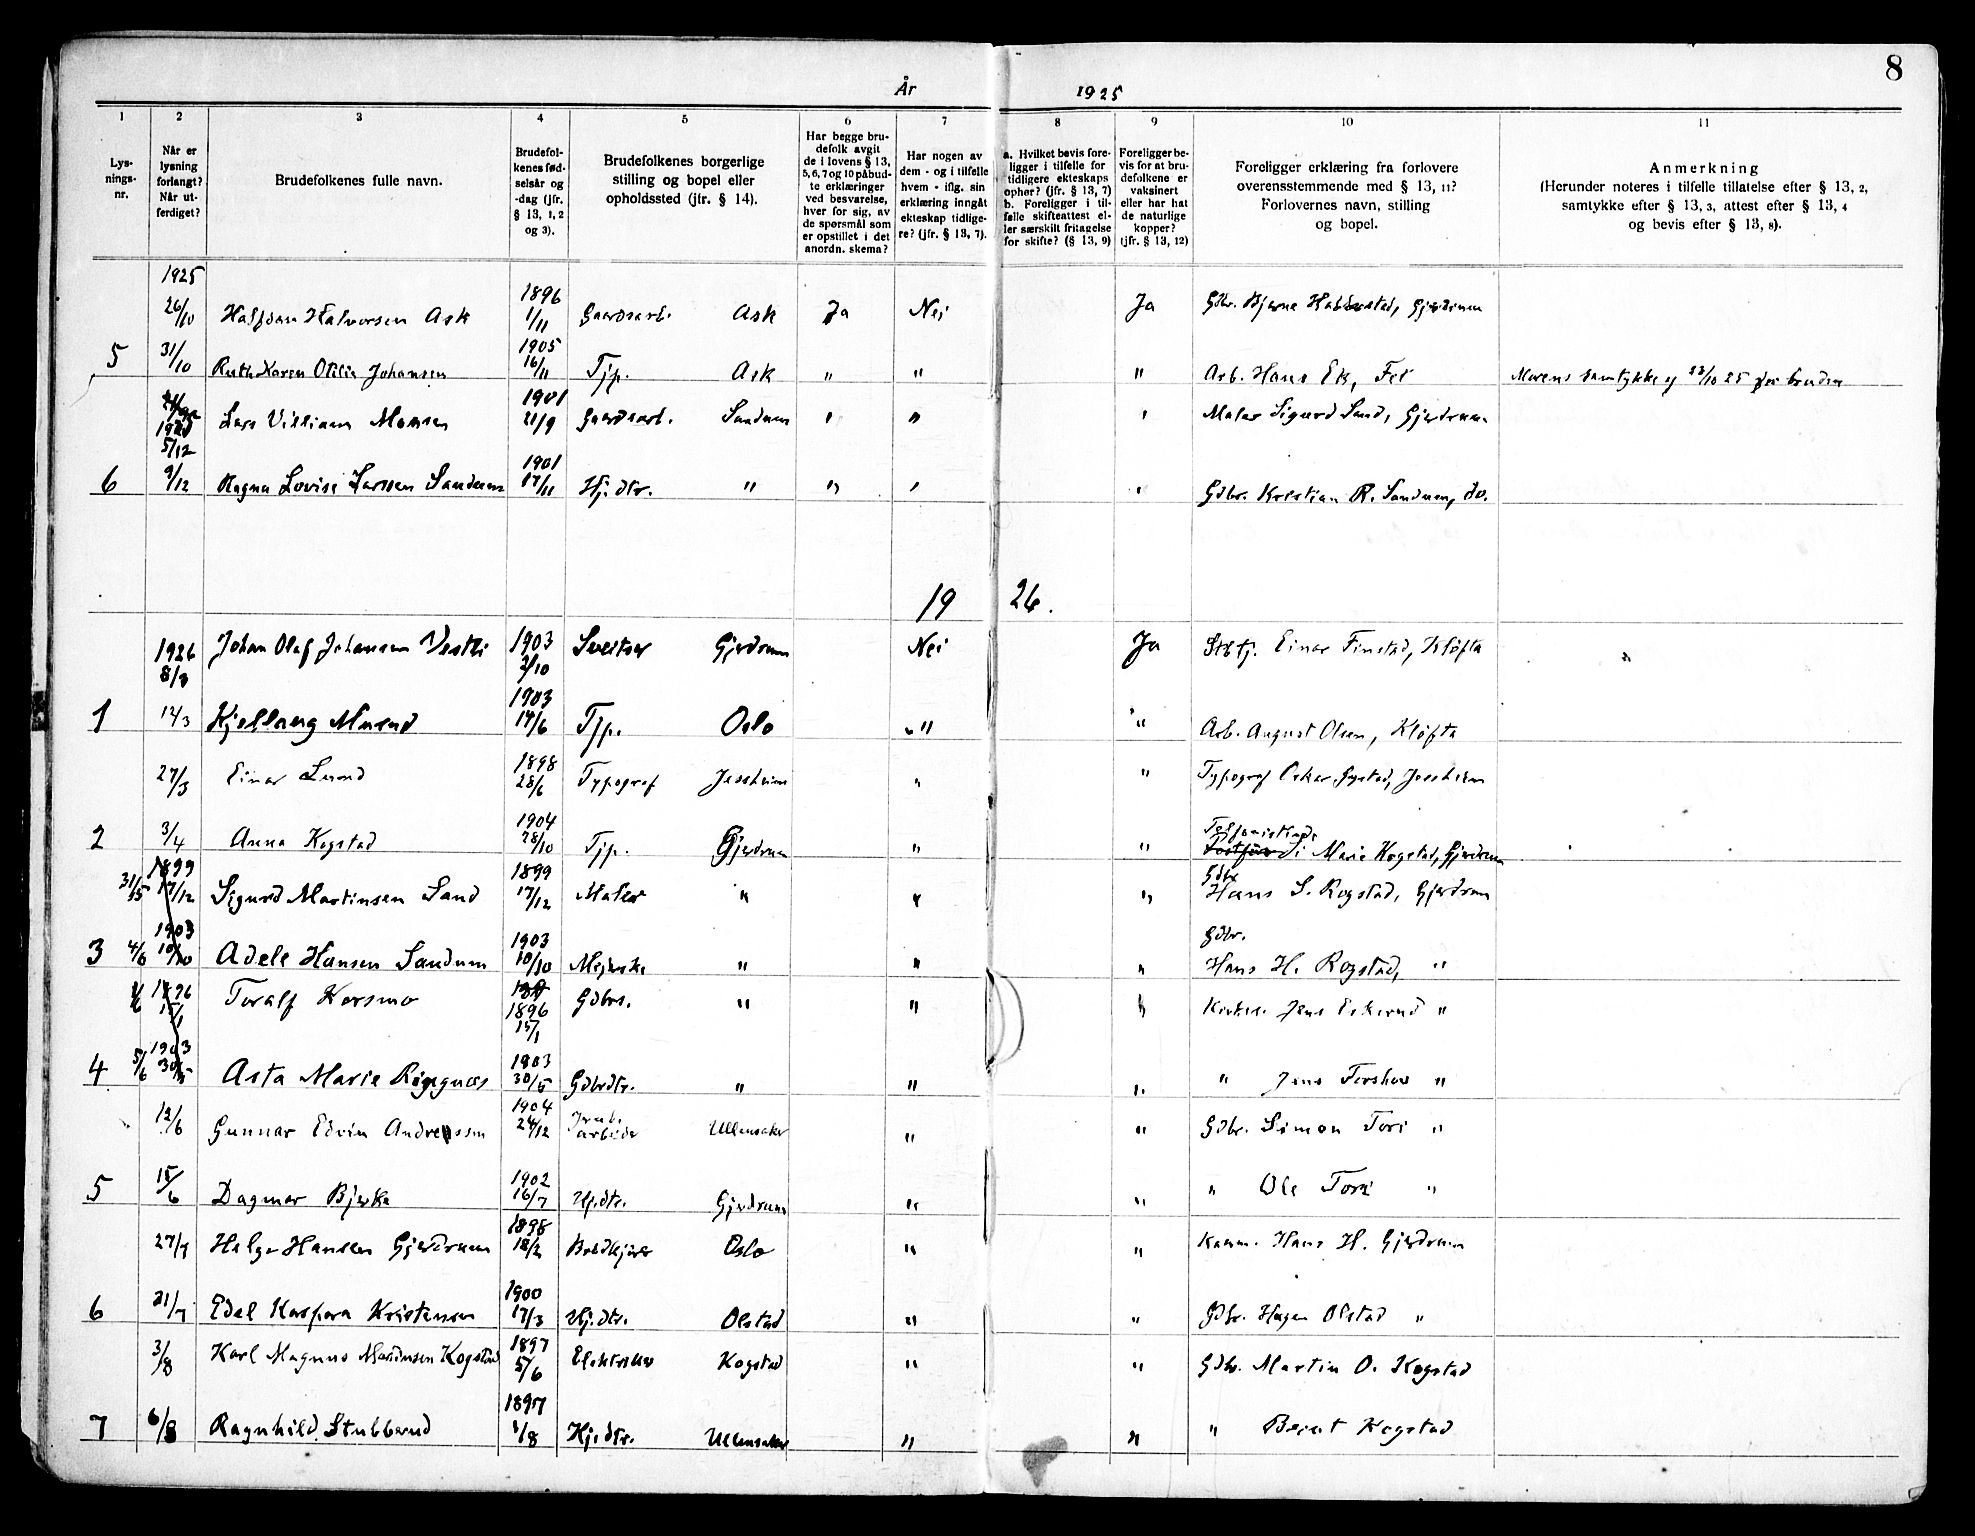 8
År 1925
1 2 3 4 5 6 7 8 9 10 11
Lys-
nings-
nr.
Når er
lysning
forlangt?
Når ut-
ferdiget?
Brudefolkenes fulle navn.
Brudefol-
kenes fød-
selsår og
-dag (jfr.
§ 13, 1, 2
og 3).
Brudefolkenes borgerlige
stilling og bopel eller
opholdssted (jfr. § 14).
Har begge bru-
defolk avgit
de i lovens § 13,
5, 6, 7 og 10 påbud-
te erklæringer
ved besvarelse,
hver for sig, av
de spørsmål som
er opstillet i det
anordn. skema?
Har nogen av
dem - og i tilfelle
hvem - iflg. sin
erklæring inngåt
ekteskap tidlige-
re? (jfr. § 13, 7).
a. Hvilket bevis fore-
ligger i tilfelle for
tidligere ekteskaps
ophør? (jfr. § 13, 7)
b. Foreligger i til-
felle skifteattest el-
ler særskilt fritagelse
for skifte? (§ 13, 9)
Foreligger be-
vis for at bru-
defolkene er
vaksinert
eller har hat
de naturlige
kopper?
(jfr. § 13, 12)
Foreligger erklæring fra forlovere
overensstemmende med § 13, 11?
Forlovernes navn, stilling
og bopel.
Anmerkning
(Herunder noteres i tilfelle tillatelse efter § 13, 2,
samtykke efter § 13, 3, attest efter § 13, 4
og bevis efter § 13, 8).
1925
26/10 Halfdan Halvorsen Ask 1896 1/11 Gaardsarb. Ask Ja Nei Ja Gbr. Bjarne Gjerdrum
5 31/10 Ruth Karen Otilie Johansen 1905 16/11 Tjp. Ask " " " Arb. Hans Ek, Fet Morens samtykke 25 for bruden
1925 5/12 Lars Villiam Monsen 1901 21/9 Gaardsarb. Sandum " " " Maler Sigurd Sand, Gjerdrum
6 9/12 Ragna Lovise Larsen Sandum 1901 17/11 Hj.dtr. " " " " Gdbr. Kristian R. Sandum, do.
1926.
1926 8/3 Johan Olaf Johansen Vestli 1903 2/10 Sveitser Gjerdrum Nei Ja Stbtj. Einar Finstad, Kløfta "
1 12/3 Kjellaug 1903 14/6 Tjp. Oslo " " Arb. August Olsen, Kløfta
27/3 Einar Lund 1898 28/6 Typograf Jessheim " " Typograf Oskar Jessheim
2 3/4 Anna Kogstad 1904 28/10 Tjp. Gjerdrum " " Telefonistinde Marie Kogstad, Gjerdrum
31/5 1899 17/12 Sigurd Martinsen Sand 1899 17/12 Maler " " " Gdbr. Hans S. Rogstad, Gjerdrum
3 4/6 1903 10/10 Adele Hansen Sandum 1903 10/10 Meierske " " " Gdbr. Hans H. Rogstad, "
1896 15/1 Toralf Korsmo 1896 15/1 Gdbr. " " " Kirkes. Jens Eskerud "
4 5/6 1903 30/5 Asta Marie Ringnæs 1903 30/5 Gdbrdtr. " " " " Jens "
12/6 Gunnar Edvin Andreassen 1904 24/12 Jernb. arbeider Ullensaker " " Gdbr. Simon Tori "
5 15/6 Dagmar Bjerke 1902 16/7 Hj.dtr. Gjerdrum " " " Ole Tori "
27/7 Helge Hansen Gjerdrum 1898 18/2 Oslo " " Hans H. Gjerdrum
6 31/7 Edel Kaspara Kristensen 1900 17/3 Hj.dtr. Olstad " " Gdbr. Hagen Olstad "
3/8 Karl Magnus Martinsen Kogstad 1897 5/6 Elektriker Kogstad " " Gdbr. Martin O. Kogstad
7 6/8 Ragnhild Stubberud 1897 1/8 Hj.dtr. Ullensaker " " " Bernt Kogstad